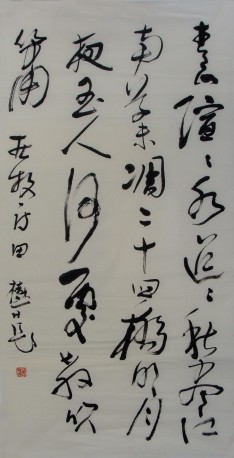 青山隱〻水迢〻秋盡江
南草未凋二十四橋明月
夜玉人何處教吹
簫 杜牧詩